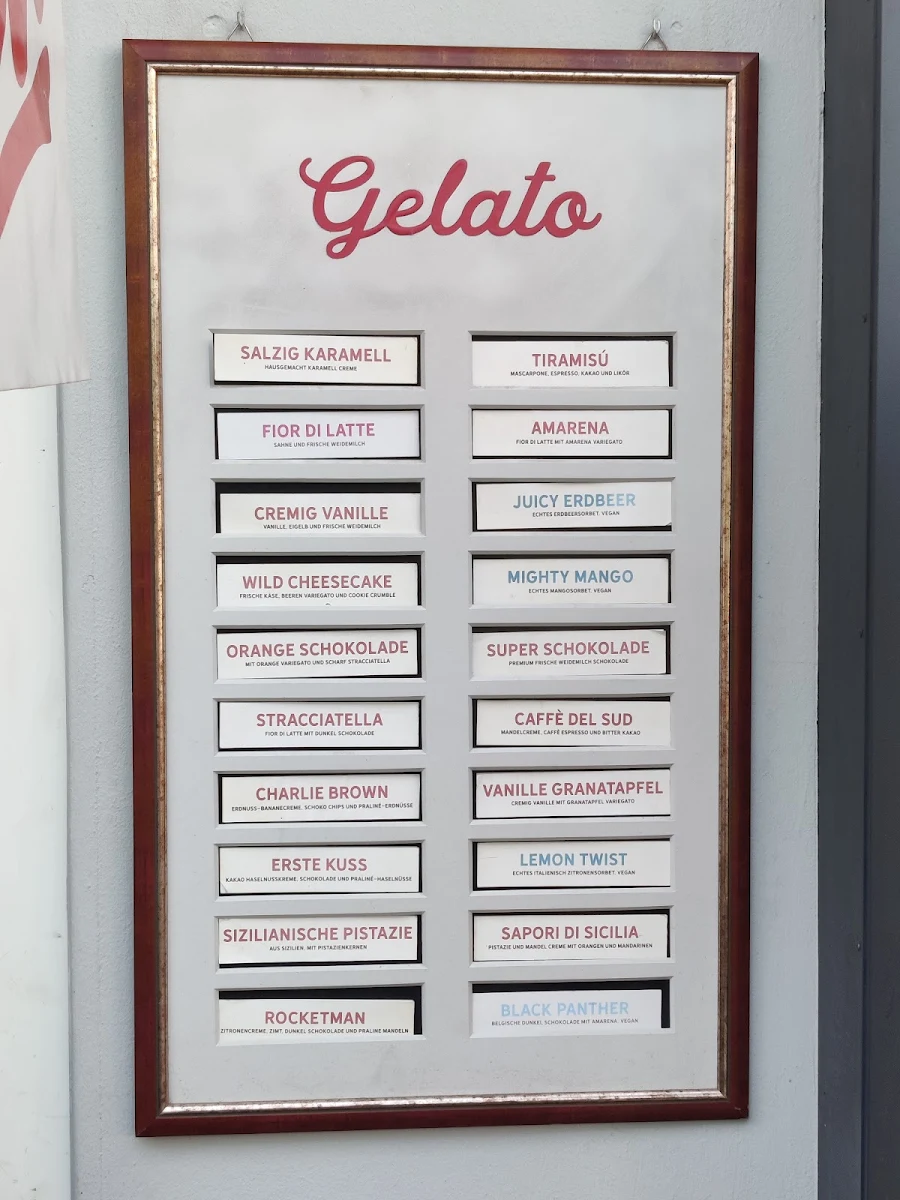 Gelato
SALZIG KARAMELL
HAUSGEMACHT KARAMELL CREME
FIOR DI LATTE
SAHNE UND FRISCHE WEIDEMILCH
CREMIG VANILLE
VANILLE, EIGELB UND FRISCHE WEIDEMILCH
WILD CHEESECAKE
FRISCHE KÄSE, BEEREN VARIEGATO UND COOKIE CRUMBLE
ORANGE SCHOKOLADE
MIT ORANGE VARIEGATO UND SCHARF STRACCIATELLA
STRACCIATELLA
FIOR DI LATTE MIT DUNKEL SCHOKOLADE
CHARLIE BROWN
ERDNUSS-BANANECREME, SCHOKO CHIPS UND PRALINÉ-ERDNÜSSE
ERSTE KUSS
KAKAO HASELNUSSKREME, SCHOKOLADE UND PRALINÉ-HASELNÜSSE
SIZILIANISCHE PISTAZIE
AUS SIZILIEN, MIT PISTAZIENKERNEN
ROCKETMAN
ZITRONENCREME, ZIMT, DUNKEL SCHOKOLADE UND PRALINE MANDELN
TIRAMISÚ
MASCARPONE, ESPRESSO, KAKAO UND LIKÖR
AMARENA
FIOR DI LATTE MIT AMARENA VARIEGATO
JUICY ERDBEER
ECHTES ERDBEERSORBET, VEGAN
MIGHTY MANGO
ECHTES MANGOSORBET, VEGAN
SUPER SCHOKOLADE
PREMIUM FRISCHE WEIDEMILCH SCHOKOLADE
CAFFÈ DEL SUD
MANDELCREME, CAFFÉ ESPRESSO UND BITTER KAKAO
VANILLE GRANATAPFEL
CREMIG VANILLE MIT GRANATAPFEL VARIEGATO
LEMON TWIST
ECHTES ITALIENISCH ZITRONENSORBET, VEGAN
SAPORI DI SICILIA
PISTAZIE UND MANDEL CREME MIT ORANGEN UND MANDARINEN
BLACK PANTHER
BELGISCHE DUNKEL SCHOKOLADE MIT AMARENA, VEGAN